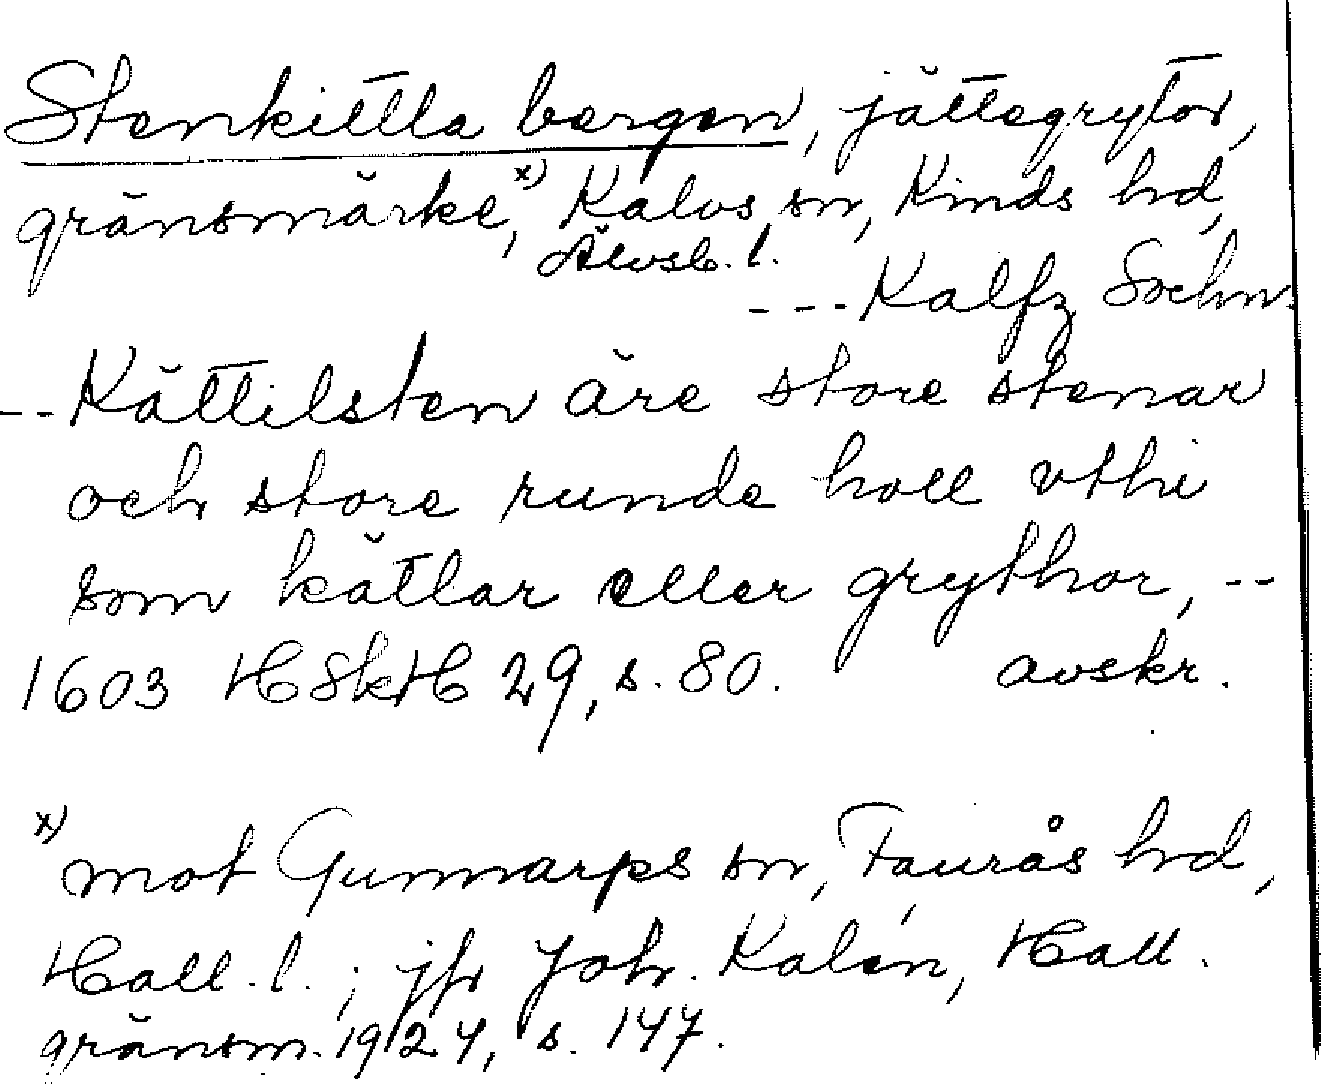 Stenkittla bergen, jättegrytor,
gränsmärke,x) Kalvs sn, Kinds hd,
Älvsb. l.
--- Kalfz Sochn.
-- Kättilsten äre store stenar
och store runde holl vthi
som kätlar eller grythor, --
1603 HSkH 29, s. 80. avskr.
x) mot Gunnarps sn, Faurås hd,
Hall. l.; jfr Joh. Kalén, Hall.
gränsm. 1924, s. 147.